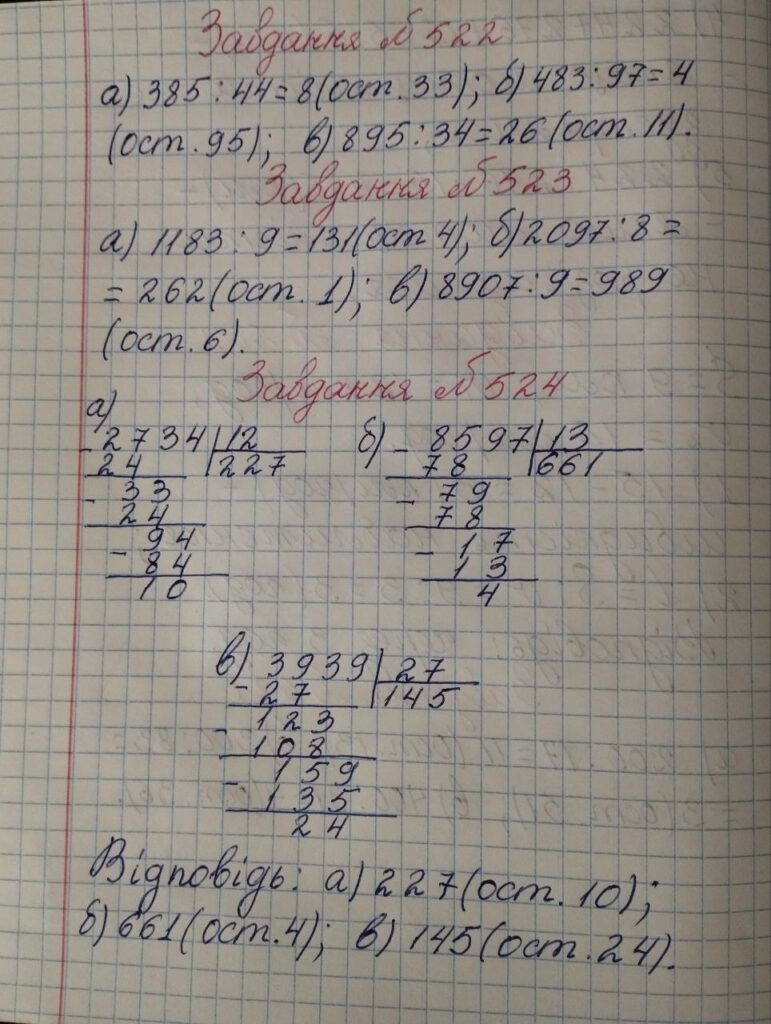 Завдання №522
а) 385 : 44 = 8 (ост. 33); б) 483 : 97 = 4
(ост. 95); в) 895 : 34 = 26 (ост. 11).
Завдання №523
а) 1183 : 9 = 131 (ост 4); б) 2097 : 8 =
= 262 (ост. 1); в) 8907 : 9 = 989
(ост. 6).
Завдання №524
а)
- 2734 | 12
24 | 227
- 33
24
- 94
84
10
б) - 8597 | 13
78 | 661
- 79
78
- 17
13
4
в) 3939 | 27
- 27 | 145
- 123
108
- 159
135
24
Відповідь: а) 227 (ост. 10);
б) 661 (ост. 4); в) 145 (ост. 24).